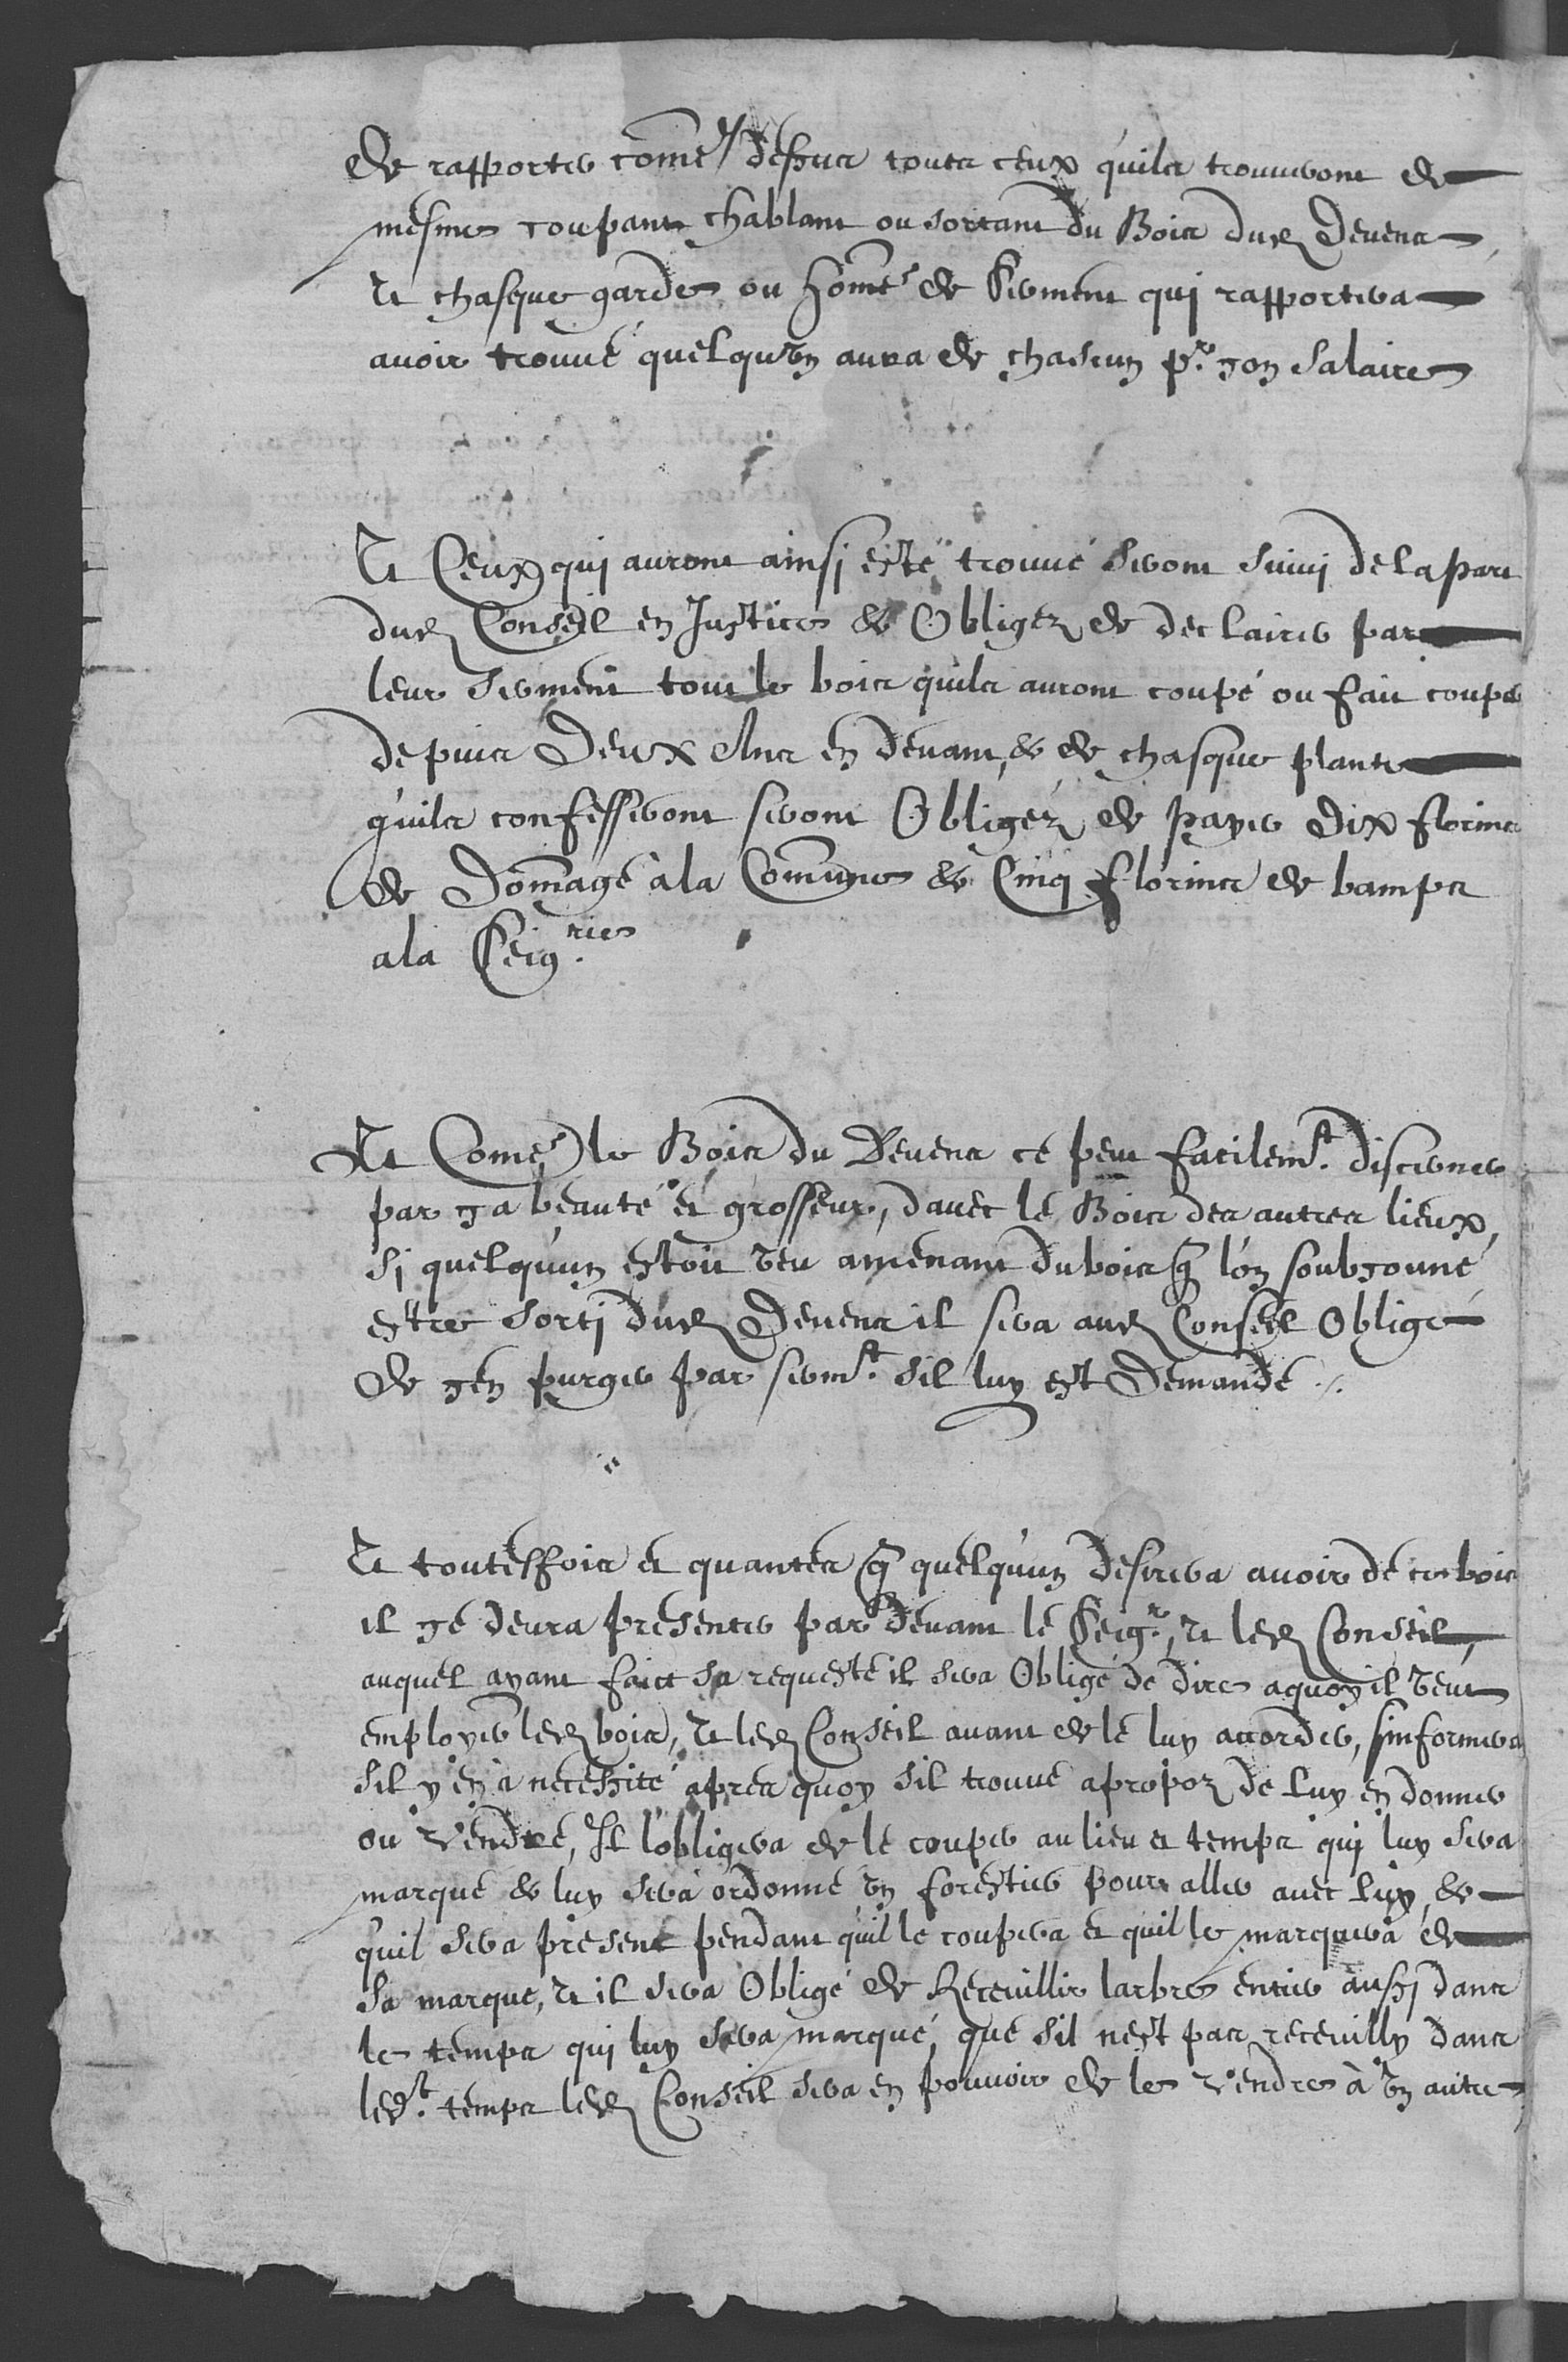 de rapporter com̃e dessus touts ceux quils trouueront de
mesmes coupant chablant ou sortant du Bois dud Deuens
Et chasque garde ou hom̃e de serment quj rapportera
auoir trouué quelqu'vn aura de chascun pr son salaire
Et Ceux quj auront ainsj esté trouué seront suiuj de la part
dud Conseil en Justice & Obligez de declairer par
leur serment tout le bois quils auront coupé ou fait couper
depuis Deux Ans en deuant, & de chasque plante
quils confesseront seront Obligéz de payer Dix florins
de Dom̃age a la Com̃une & Cinq florins de bamps
a la Seigrie
Et Com̃e le Bois du Deuens ce peut facilemt discerner
par sa beauté et grosseur, dauec le Bois des autres lieux,
Sj quelqu'un estoit veu amenant du bois q̃ l'on soubsonne
estre sortj dud Deuens il sera aud Conseil Obligé
de s'en purger par sermt sil luy est Demandé
Et toutesfois et quantes q̃ quelqu'un desirera auoir de ce bois
il se deura presenter par deuant le Seigr, et led Conseil,
auquel ayant faict sa requeste il sera Obligé de dire a quoy il veut
employer led bois, et led Conseil auant de le luy accorder, sinformera
sil y en a necessité apres quoy sil trouue a propoz de luy en donner
ou vendre, Il l'obligera de le couper au lieu et temps qui luy sera
marqué & luy sera ordonné vn forestier pour aller auec luy, &
quil sera present pendant quil le coupera et quil le marquera de
Sa marque, et il sera Obligé de Receuillir larbre entier aussj dans
le temps quj luy sera marqué, que sil nest pas receuilly dans
ledt temps led Conseil sera en pouuoir de le vendre à vn autre